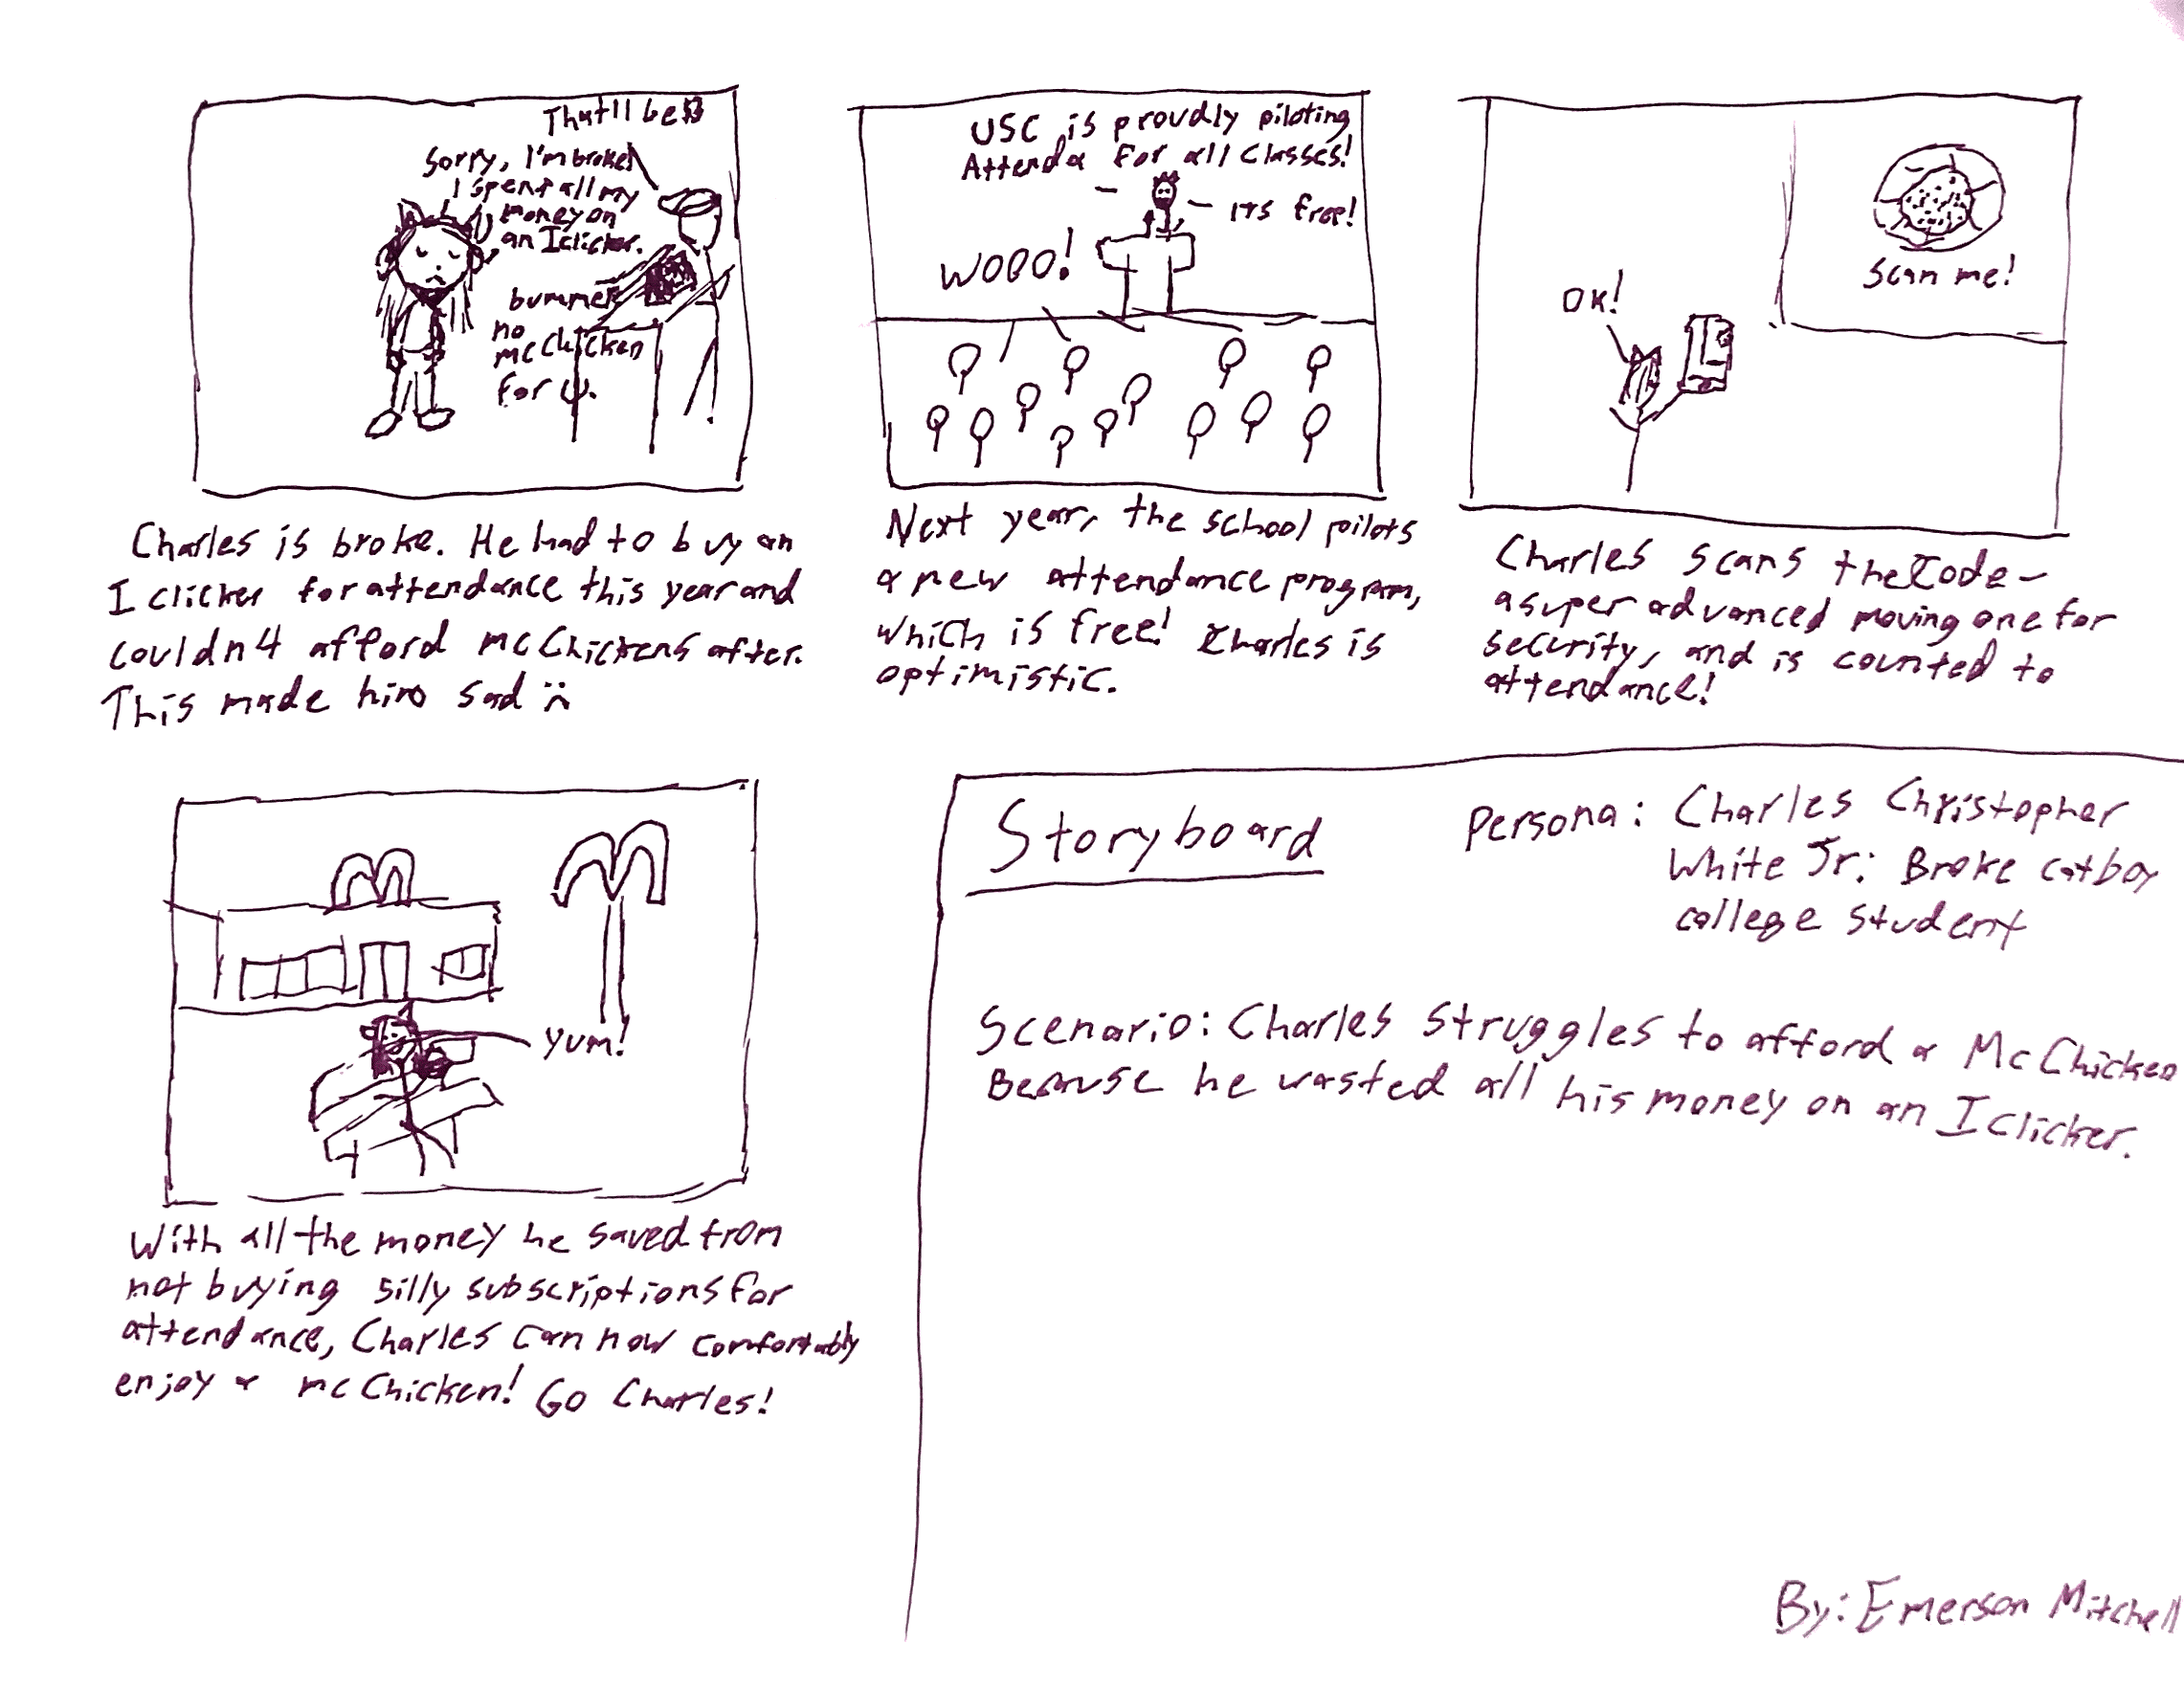 That'll be
Sorry, I'm broke!
I spent all my
money on
an Iclicker.
bummer
no
mcChicken
for u.
Charles is broke. He had to buy an
I clicker for attendance this year and
couldn4 afford mcChickens after.
This made him sad :(
USC is proudly piloting
Attenda for all classes!
its free!
WOOO!
Next year, the school pilots
a new attendance program,
which is free! Charles is
optimistic.
Scan me!
OK!
Charles scans the code-
a super advanced moving one for
security, and is counted to
attendance!
yum!
With all the money he saved from
not buying silly subscriptions for
attendance, Charles can now comfortably
enjoy a mcChicken! Go Charles!
Storyboard
Persona: Charles Christopher
White Jr.: Broke catboy
college student
Scenario: Charles struggles to afford a McChicken
Because he wasted all his money on an Iclicker.
By: Emerson Mitchell